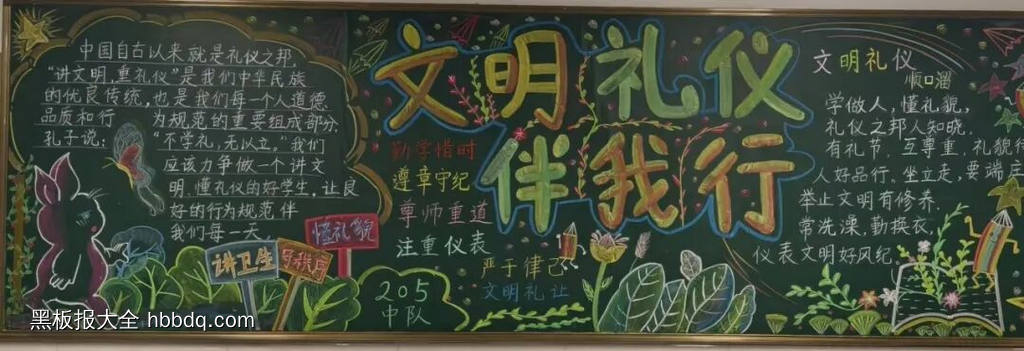 中国自古以来就是礼仪之邦
“讲文明,重礼仪”是我们中华民族
的优良传统,也是我们每一个人道德
品质和行为规范的重要组成部分
孔子说:“不学礼,无以立,”我们
应该力争做一个讲文
明,懂礼仪的好学生,让良
好的行为规范伴
我们每一天。
文明礼仪
伴我行
勤学惜时
遵章守纪
尊师重道
注重仪表
严于律己
文明礼让
懂礼貌
讲卫生
守秩序
205
中队
文明礼仪
顺口溜
学做人,懂礼貌,
礼仪之邦人知晓.
有礼节,互尊重,礼貌行
人好品行.坐立走,要端庄
举止文明有修养.
常洗澡,勤换衣,
仪表文明好风纪.
黑板报大全 hbbdq.com